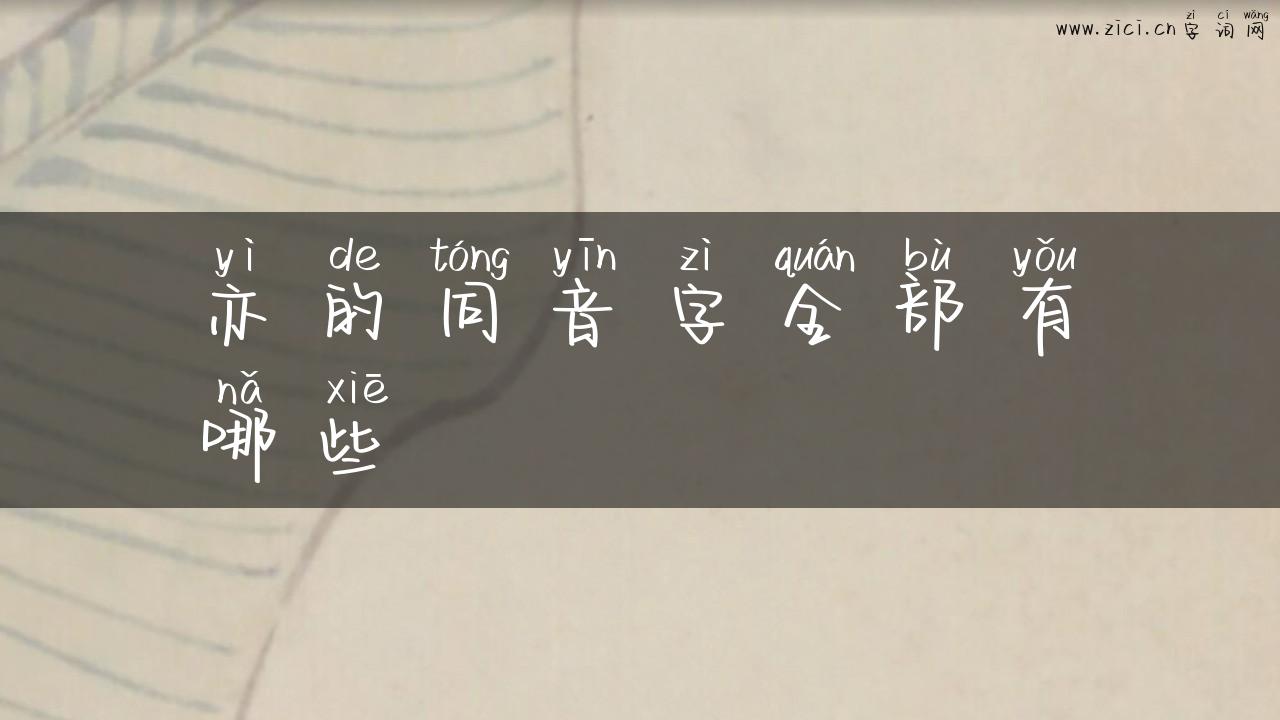 zì cí wǎng
www.zici.cn 字词网
yì de tóng yīn zì quán bù yǒu
亦的同音字全部有
nǎ xiē
哪些